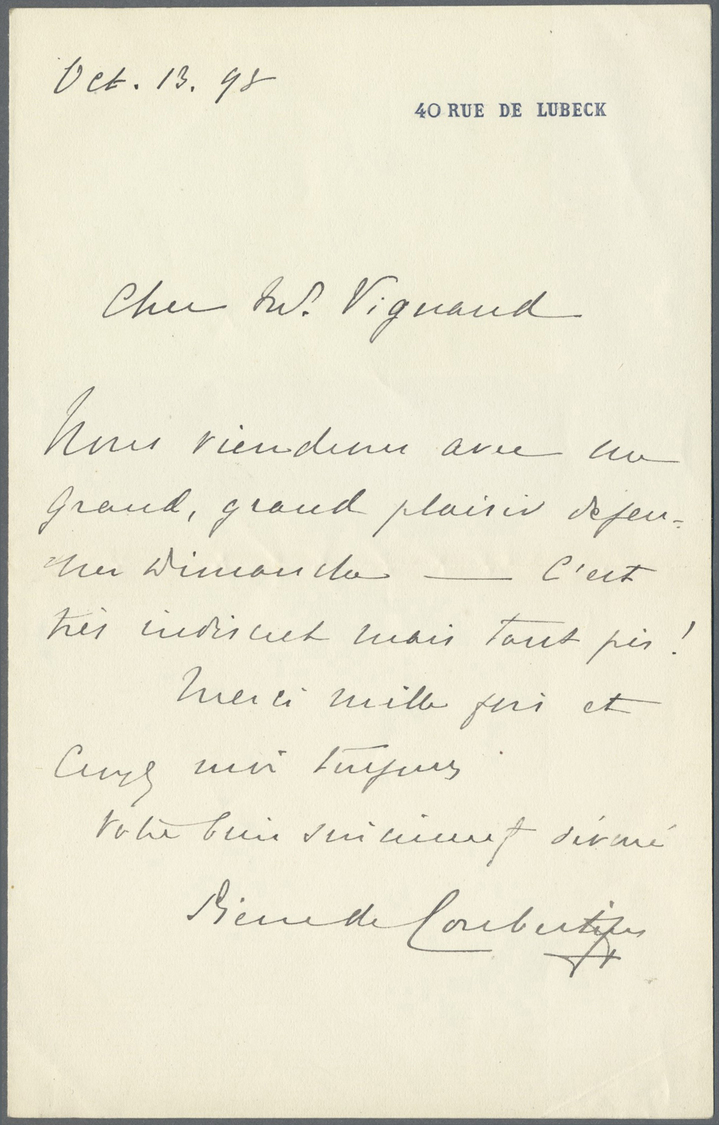 Oct. 13. 98
40 RUE DE LUBECK
Cher Mr. Vignaud
Nous viendrons avec un
grand, grand plaisir déjeu-
ner Dimanche — C'est
très indiscret mais tant pis !
Merci mille fois et
croyez moi toujours
votre bien sincèrement dévoué
Pierre de Coubertin